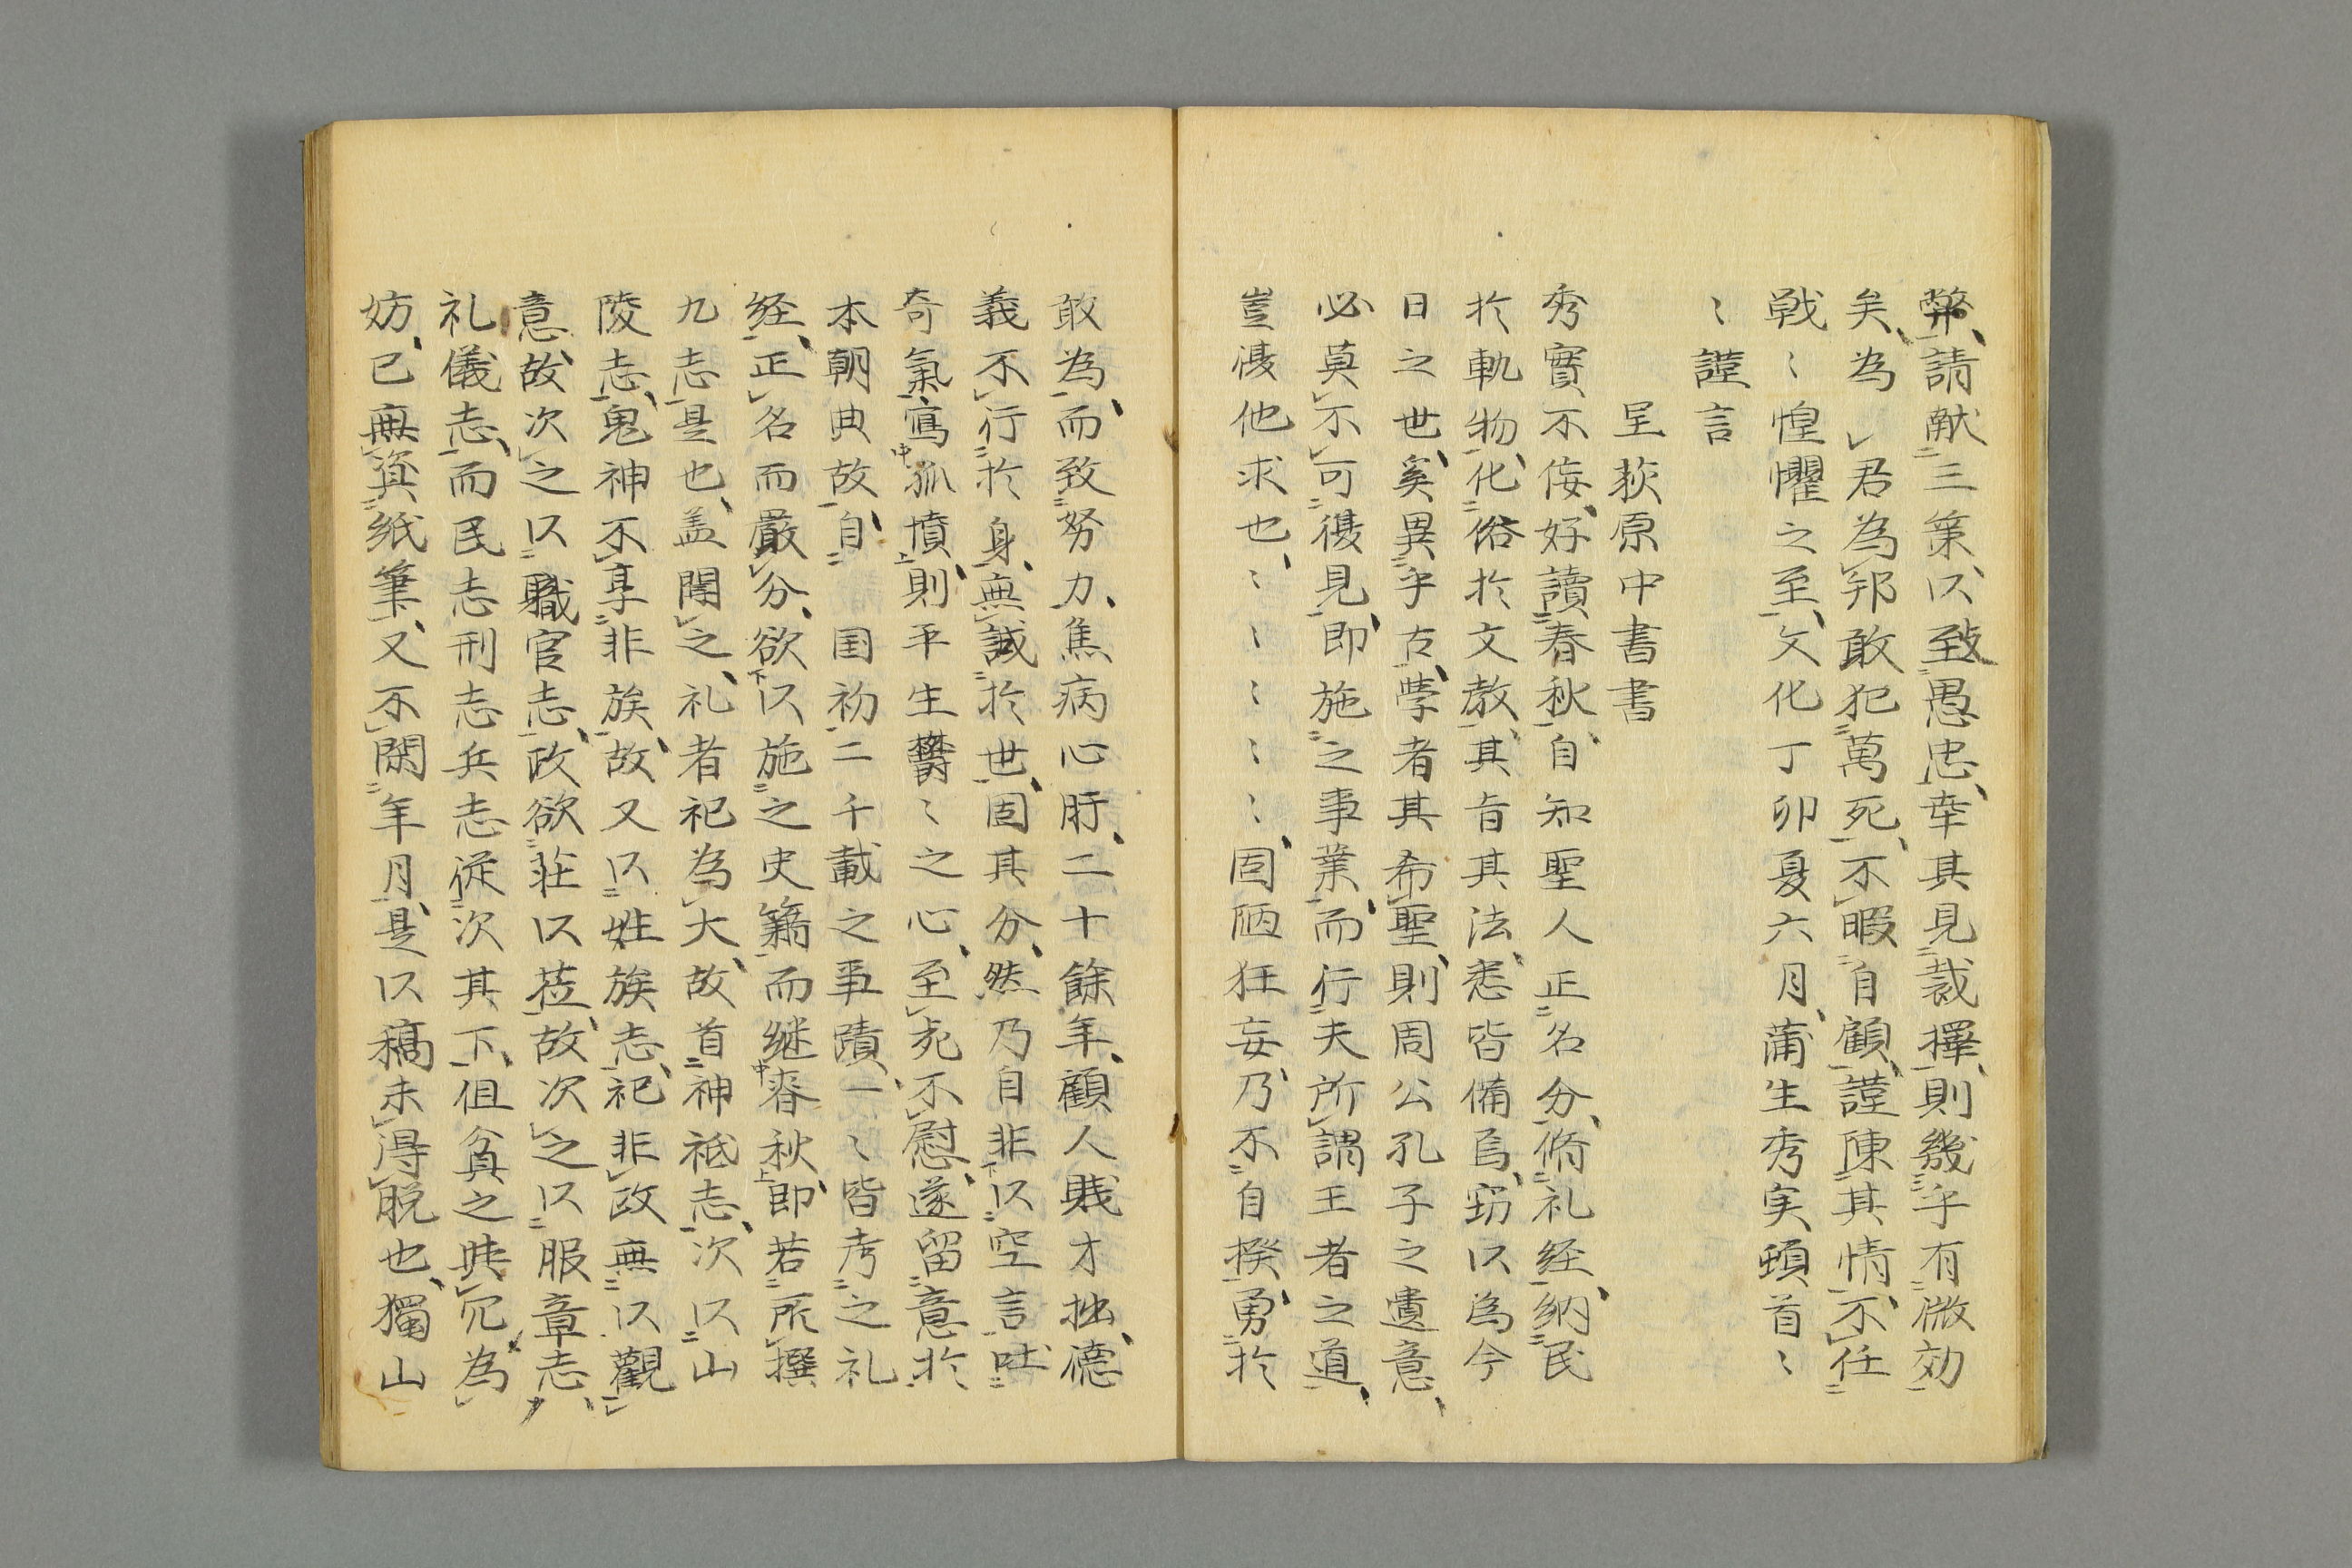 弊、請献三策、以致愚忠、幸其見裁擇、則幾乎有微効
矣、為　君為邦敢犯萬死、不暇自顧、謹陳其情、不任
戦〻惶懼之至、文化丁卯夏六月、蒲生秀実、頓首〻
〻謹言
呈荻原中書書
秀實不佞、好讀春秋、自知聖人正名分、脩礼経、納民
於軌物、化俗於文教、其旨其法、悉皆備焉、窃以為今
日之世、奚異乎古、學者其希聖、則周公孔子之遺意、
必莫不可復見、即施之事業、而行夫所謂王者之道、
豈復他求也、〻〻〻〻〻、固陋狂妄、乃不自揆、勇於
敢為、而致努力、焦病心肝、二十餘年、顧人賤才拙、德
義不行於身、無誠於世、固其分、然乃自非以空言吐
奇氣、寓孤憤、則平生欝〻之心、至死不慰、遂留意於
本朝典故、自　国初二千載之事蹟、一〻皆考之礼
経、正名而嚴分、欲以施之史籍、而継春秋、即若所撰
九志是也、盖聞之、礼者祀為大、故首神祇志、次以山
陵志、鬼神不享非族、故又以姓族志、祀非政無以觀
意、故次之以職官志、政欲荘以莅、故次之以服章志、
礼儀志、而民志刑志兵志従次其下、但貧之典冗為
妨、已無資紙筆、又不閑年月、是以稿未得脱也、獨山